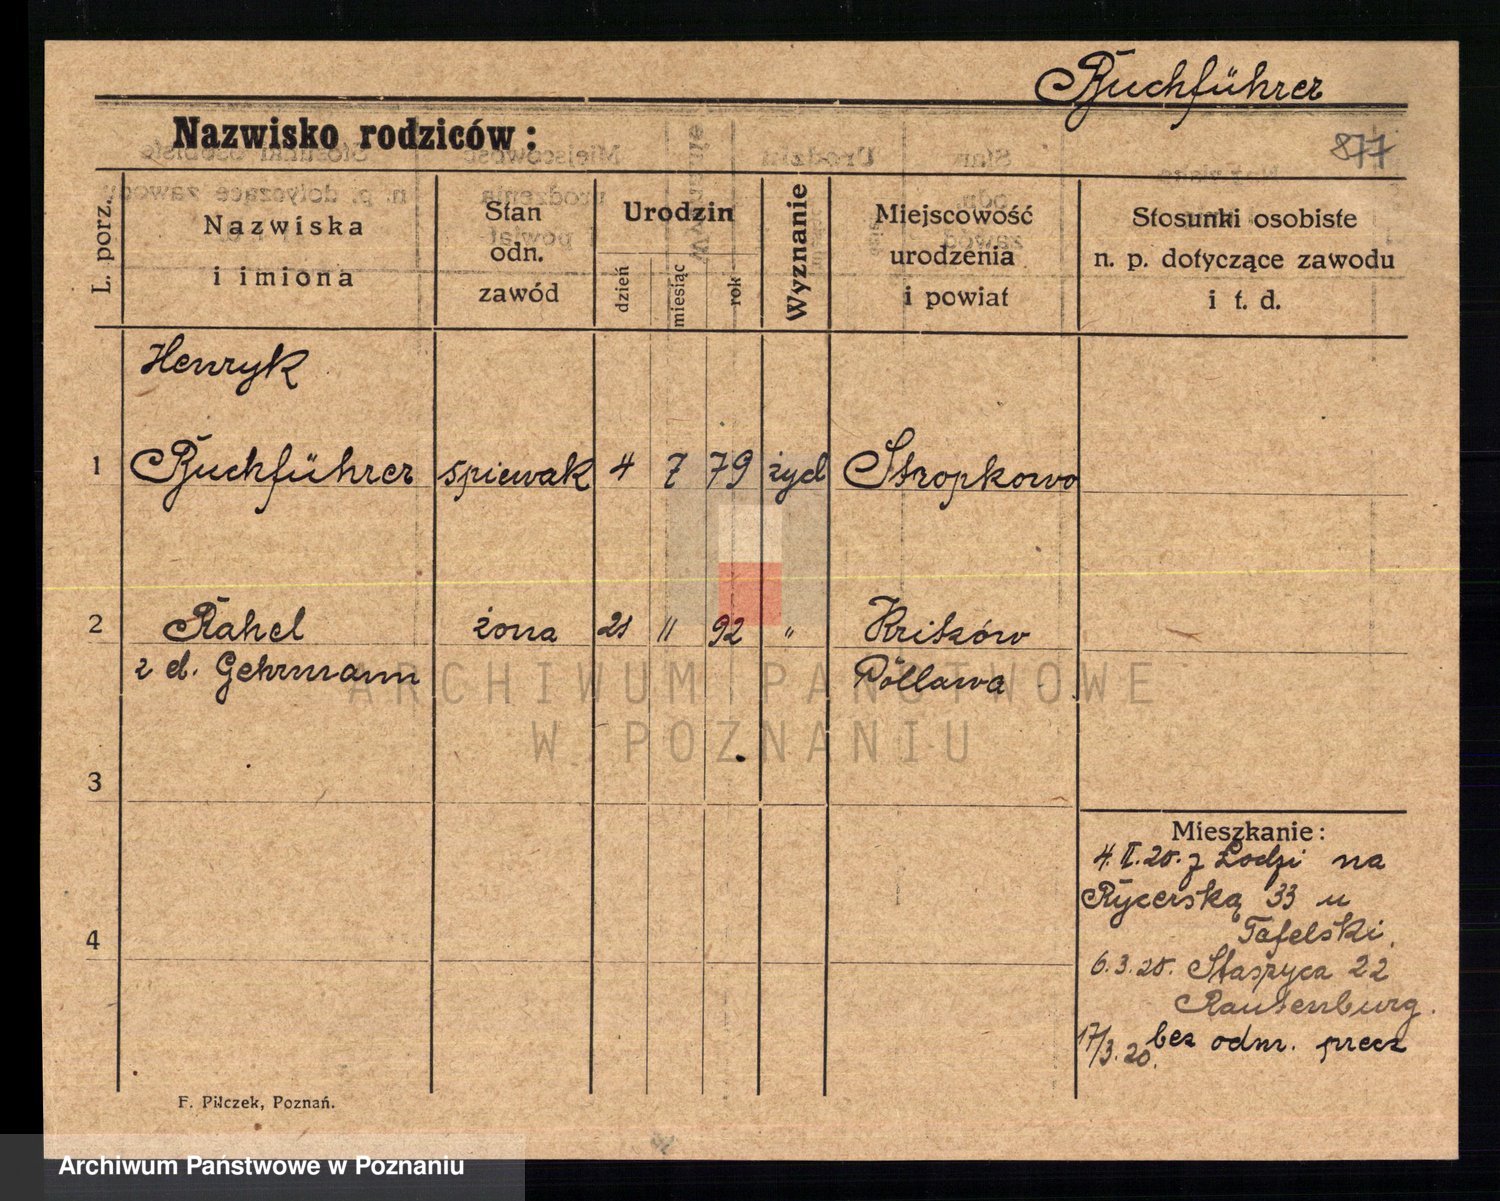 Buchführer
Nazwisko rodziców:
877
L. porz.
Nazwiska
i imiona
Stan
odn.
zawód
Urodzin
dzień
miesiąc
rok
Wyznanie
Miejscowość
urodzenia
i powiat
Stosunki osobiste
n. p. dotyczące zawodu
i t. d.
Henryk
1 Buchführer śpiewak 4 7 79 żyd Stropkowo
2 Rahel żona 21 11 92 " Kriszów
z d. Gehrmann Pöllawa
ARCHIWUM PAŃSTWOWE
W POZNANIU
3
4
Mieszkanie:
4.II.20. z Łodzi na
Rycerską 33 u
Tafelski.
6.3.20. Staszyca 22
Rautenburg.
17/3.20. bez odm. precz
F. Pilczek, Poznań.
Archiwum Państwowe w Poznaniu